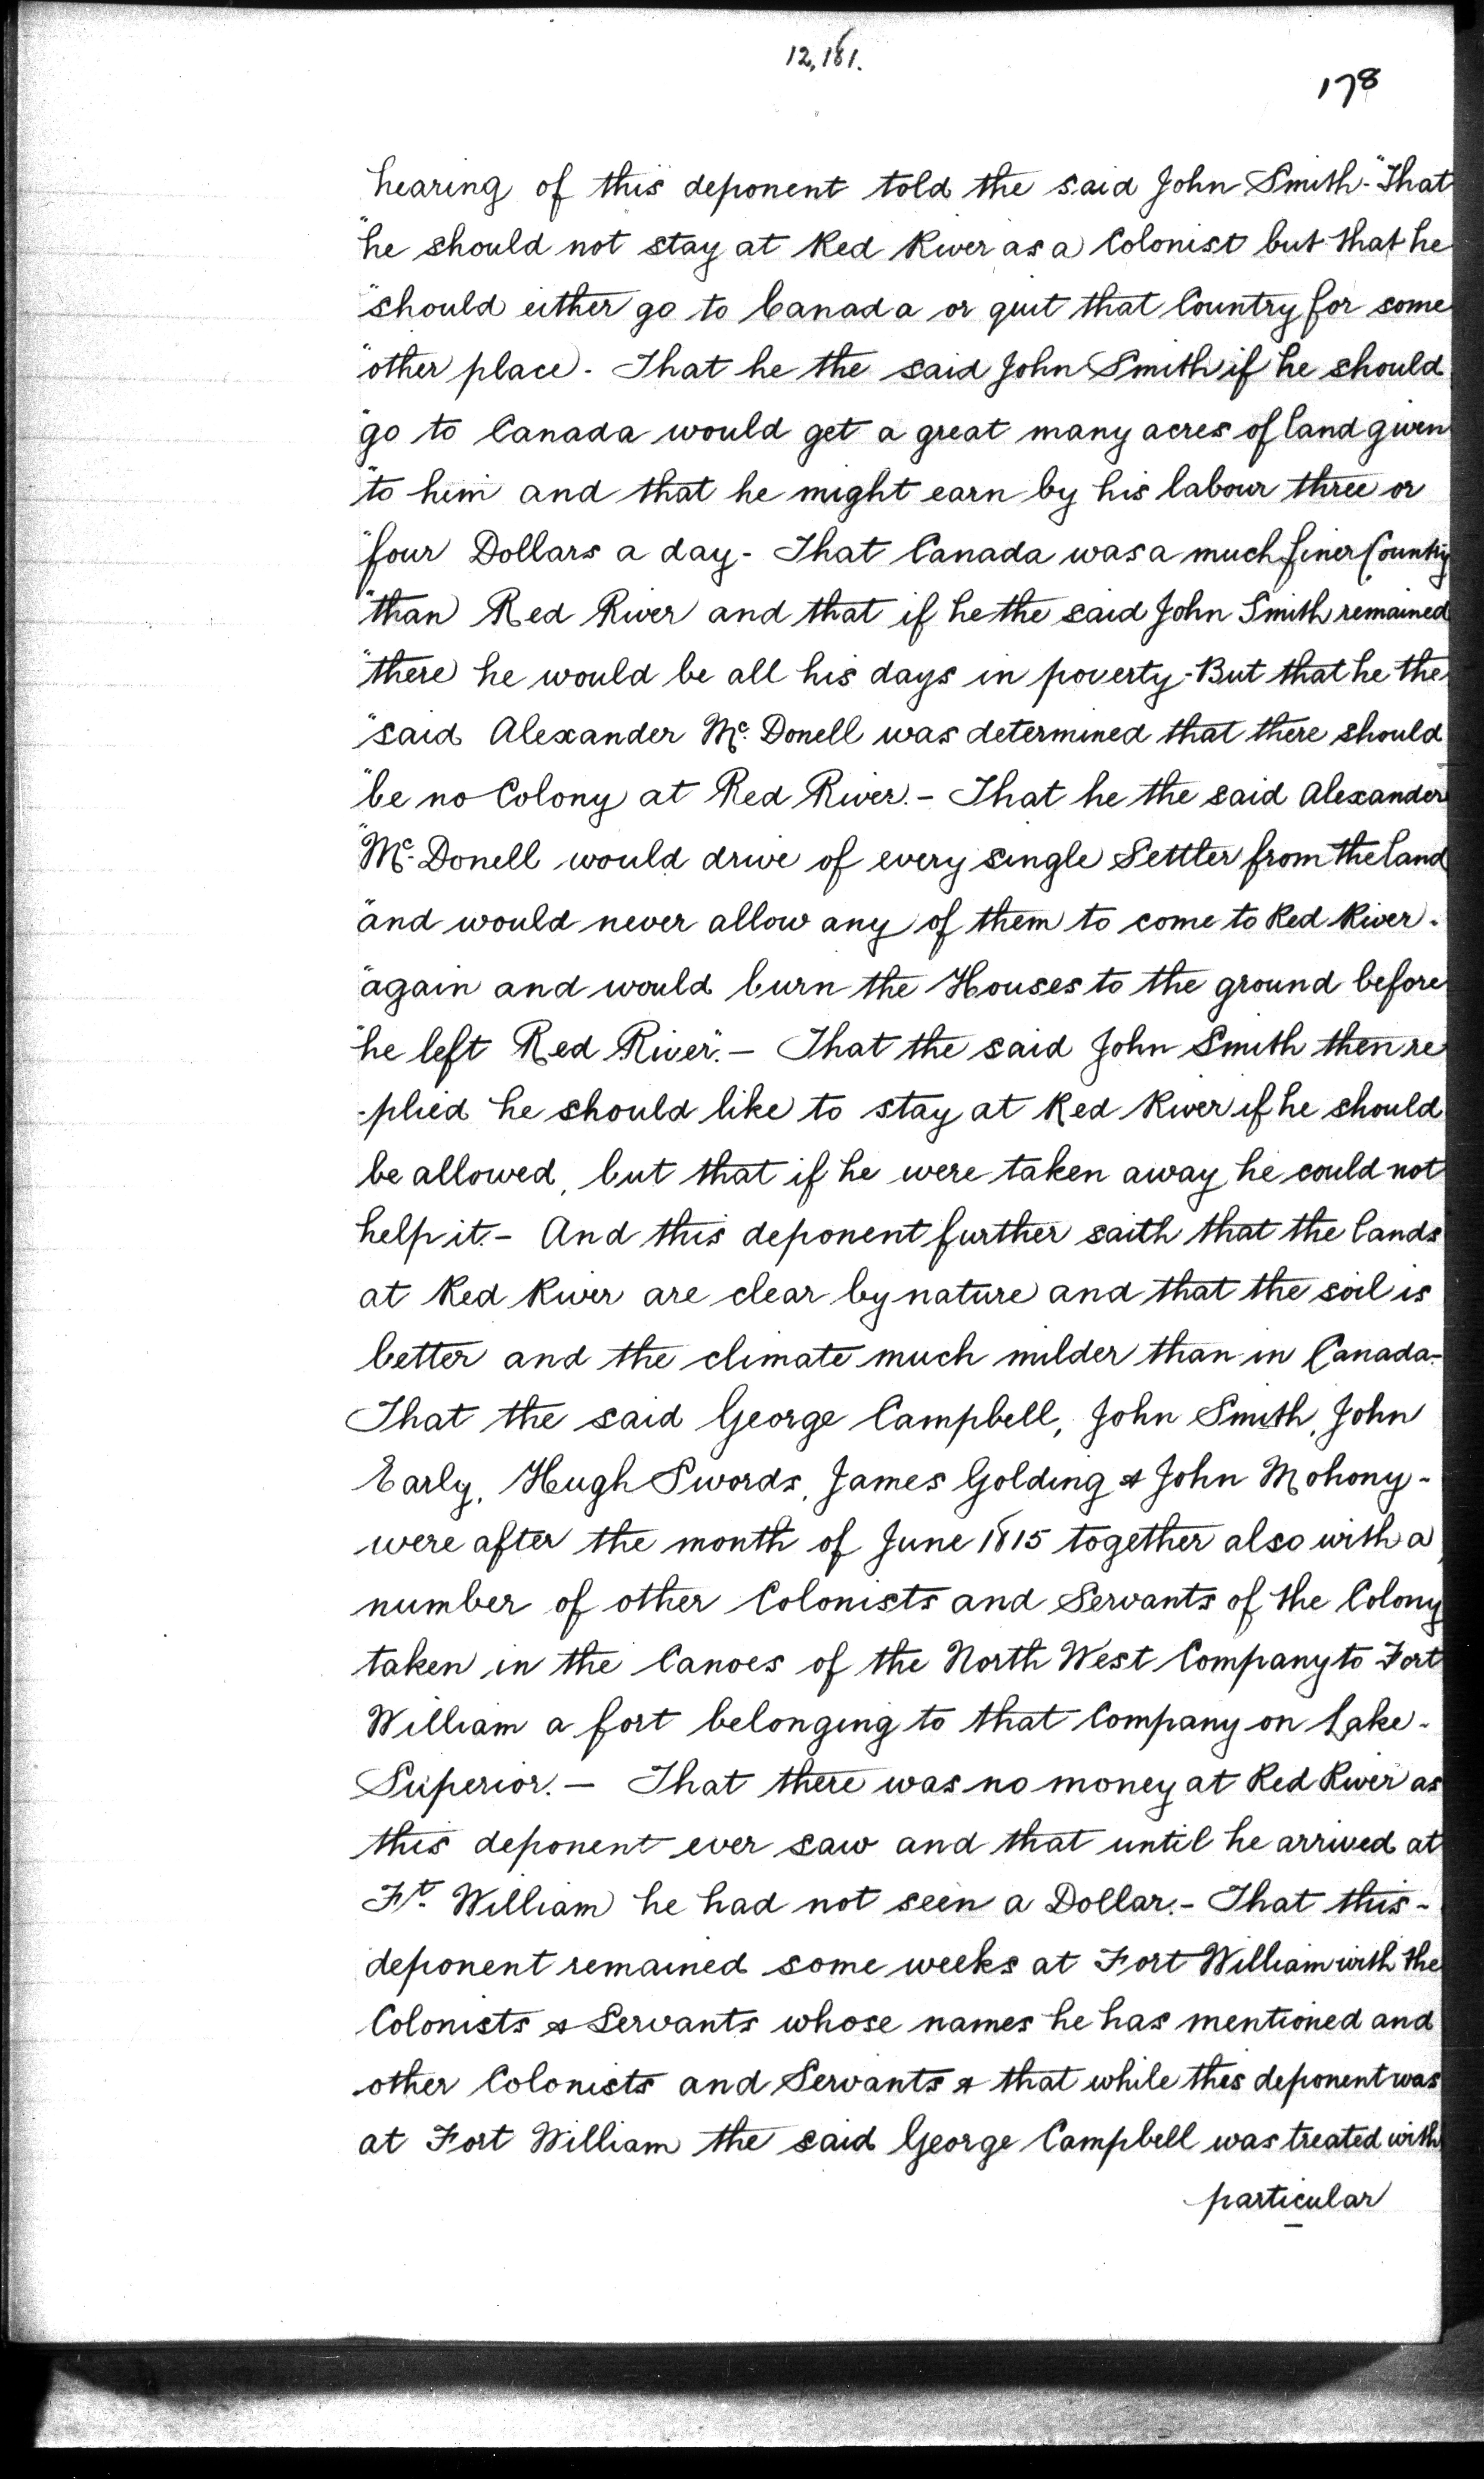 12,181.
178
hearing of this deponent told the said John Smith - "That
"he should not stay at Red River as a Colonist but that he
"should either go to Canada or quit that Country for some
"other place - That he the said John Smith if he should
"go to Canada would get a great many acres of land given
"to him and that he might earn by his labour three or
"four Dollars a day - That Canada was a much finer Country
"than Red River and that if he the said John Smith remained
"there he would be all his days in poverty - But that he the
"said Alexander Mc. Donell was determined that there should
"be no Colony at Red River. - That he the said Alexander
"Mc. Donell would drive of every single Settler from the land
"and would never allow any of them to come to Red River -
"again and would burn the Houses to the ground before
"he left Red River". - That the said John Smith then re
-plied he should like to stay at Red River if he should
be allowed, but that if he were taken away he could not
help it. - And this deponent further saith that the lands
at Red River are clear by nature and that the soil is
better and the climate much milder than in Canada -
That the said George Campbell, John Smith, John
Early, Hugh Swords, James Golding & John Mohony -
were after the month of June 1815 together also with a
number of other Colonists and Servants of the Colony
taken in the Canoes of the North West Company to Fort
William a fort belonging to that Company on Lake -
Superior. - That there was no money at Red River as
this deponent ever saw and that until he arrived at
Ft. William he had not seen a Dollar. - That this -
deponent remained some weeks at Fort William with the
Colonists & Servants whose names he has mentioned and
other Colonists and Servants & that while this deponent was
at Fort William the said George Campbell was treated with
particular